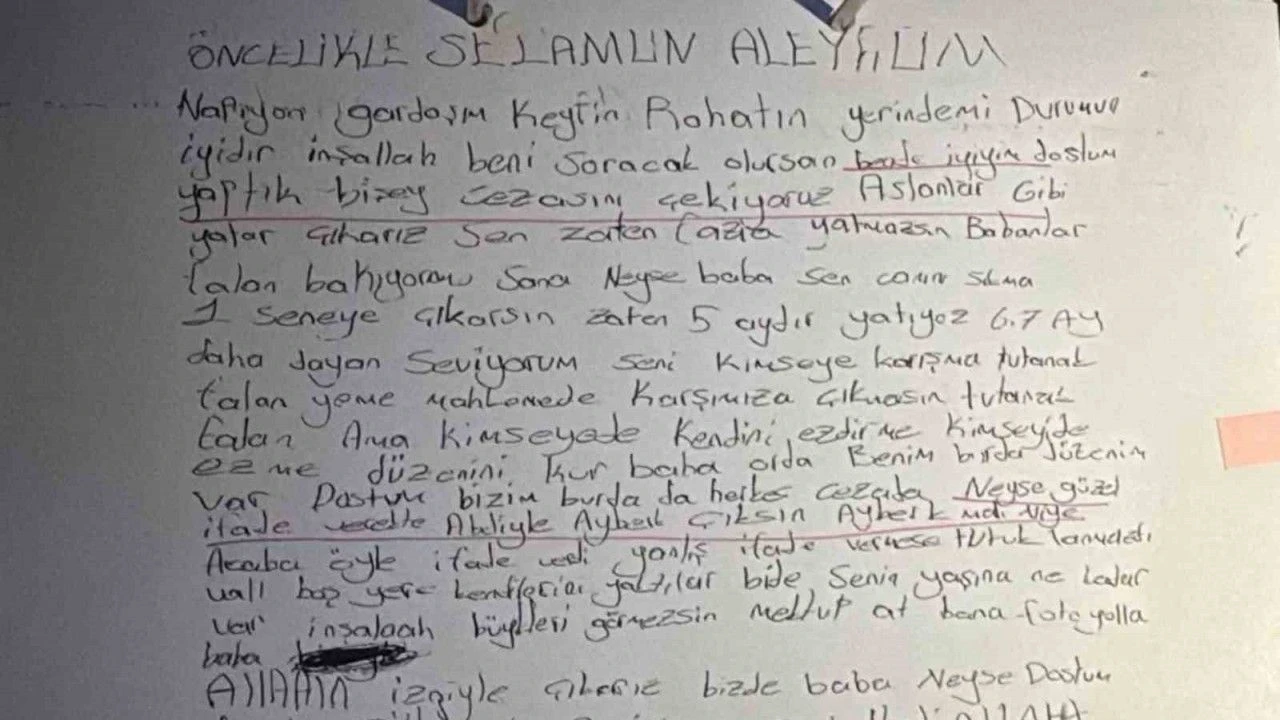 ÖNCELİKLE SELAMUN ALEYKUM
Napıyon gardaşım Keyfin Rahatın yerindemi Durumun
iyidir inşallah beni soracak olursan bende iyiyim dostum
yaptık bizey cezasını çekiyoruz Aslanlar Gibi
yatar çıkarız Sen zaten fazla yatmazsın Babanlar
falan bakıyorum Sana Neyse baba sen canın sıkma
1 seneye çıkarsın zaten 5 aydır yatıyoz 6.7 AY
daha dayan Seviyorum seni Kimseye karışma tutanak
falan yeme mahkemede karşımıza çıkmasın tutanak
falan Ama kimseyede kendini ezdirme kimseyide
ezme düzenini kur baba orda Benim burda düzenim
var Dostum bizim burda da herkes cezada Neyse güzel
ifade Abiliyle Ayberk Çıksın Ayberk niye
Acaba öyle ifade verdi yanlış ifade vermese tutuklanmadı
vall boş yere yaktılar bide Senin yaşına ne kadar
var inşalaah büyükleri görmezsin mektup at bana foto yolla
baba
Allahın izniyle çıkarız bizde baba Neyse Dostum